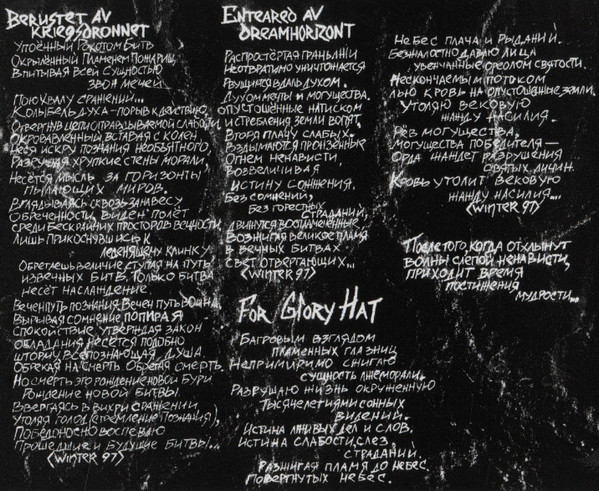 Berustet av
Kriegsdronnet
Упоённый рокотом битв
Окрылённый пламенем пожарищ,
Впитывая всей сущностью
звон мечей
Пою хвалу сражений...
Колыбель духа - порыв к действию,
Отвергнув цепи справдываемой слабости,
Окровавленный вставая с колен.
Неся искру познания необъятного,
Разрушая хрупкие стены морали,
Несётся мысль за горизонты
пылающих миров.
Вглядываясь сквозь завесу
Обреченности, виден полёт
среди бескрайних просторов вечности,
лишь прикоснувшись к
леденящему клинку
Обретаешь величие ступая на путь
извечных битв. Только битва
несёт наслаждение.
Вечен путь познания. Вечен путь воина.
Вырывая сомнение попирая
Спокойствие, утверждая закон
Обладания несётся подобно
шторму всепознающая душа.
Обрекая на смерть. Обретая смерть.
Но смерть это рождение новой бури
Рождение новой битвы.
Ввергаясь в вихри сражений
Утоляя голод (стремление познания),
Победоносно воспеваю
Прошедшие и будущие битвы!...
(Winter 97)
Enteared av
dreamhorizont
Распростёртая гранью лжи
Неотвратимо уничтожается
Рвущимся вдаль духом.
Духом мечты и могущества.
Опустошённые натиском
истребления земли вопят,
Вторя плачу слабых.
Вздымаются пронзённые
Огнем ненависти,
Возвеличивая
Истину сожжения.
Без сомнений,
Без горестных
страданий,
движутся воспламененные,
Возжигая великое пламя
в вечных битвах
свет отвергающих...
(Winter 97)
For Glory Hat
Багровым взглядом
пламенных глазниц
Непримиримо сжигаю
сущность лжеморали,
Разрушаю жизнь окруженную
Тысячелетиями сонных
видений.
Истина лживых дел и слов.
Истина слабости, слез,
страданий.
Разжигая пламя до небес.
Повергнутых небес.
Небес плача и рыданий.
Безжалостно давлю лица
увенчанные ореолом святости.
Нескончаемым потоком
лью кровь на опустошённые земли.
Утоляю вековую
жажду насилия.
Рёв могущества,
Могущества победителя -
Орда жаждет разрушения
святых личин.
Кровь утолит вековую
жажду насилия...
(Winter 97)
После того, когда отхлынут
волны слепой ненависти,
приходит время
постижения
мудрости...